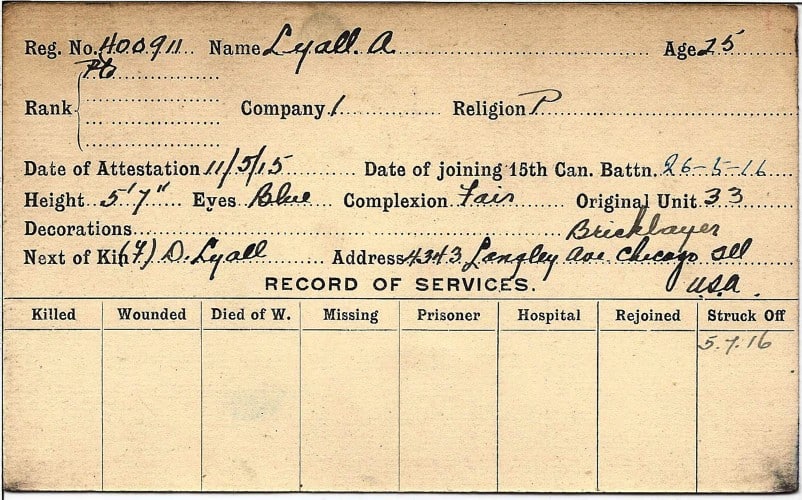 Reg. No. 400911 Name Lyall. A Age 25
Rank Pte Company 1 Religion P
Date of Attestation 11/5/15 Date of joining 15th Can. Battn. 26-5-16
Height 5'7" Eyes Blue Complexion Fair Original Unit 33
Decorations Bricklayer
Next of Kin (F) D. Lyall Address 4343 Langley Ave Chicago Ill
U.S.A.
RECORD OF SERVICES.
Killed Wounded Died of W. Missing Prisoner Hospital Rejoined Struck Off
5.7.16